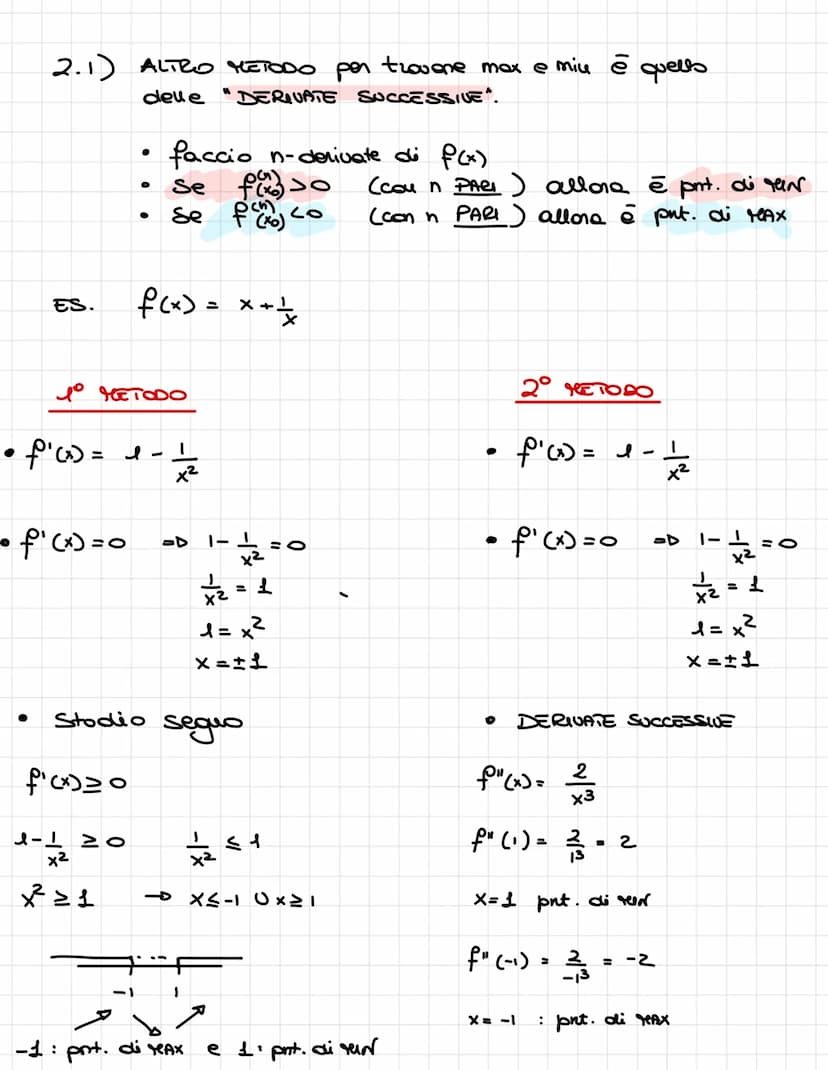 2.1) ALTRO METODO per trovare max e min è quello
delle "DERIVATE SUCCESSIVE".
• faccio n-derivate di f(x)
• se f⁽ⁿ⁾(x₀) > 0 (con n PARI) allora è pnt. di MIN
• se f⁽ⁿ⁾(x₀) < 0 (con n PARI) allora è pnt. di MAX
ES. f(x) = x + 1/x
1° METODO
• f'(x) = 1 - 1/x²
• f'(x) = 0 => 1 - 1/x² = 0
1/x² = 1
1 = x²
x = ±1
• Studio segno
f'(x) ≥ 0
1 - 1/x² ≥ 0 1/x² ≤ 1
x² ≥ 1 → x ≤ -1 ∪ x ≥ 1
-1 1
-1 : pnt. di MAX e 1 : pnt. di MIN
2° METODO
• f'(x) = 1 - 1/x²
• f'(x) = 0 => 1 - 1/x² = 0
1/x² = 1
1 = x²
x = ±1
• DERIVATE SUCCESSIVE
f''(x) = 2/x³
f''(1) = 2/1³ = 2
x = 1 pnt. di MIN
f''(-1) = 2/-1³ = -2
x = -1 : pnt. di MAX